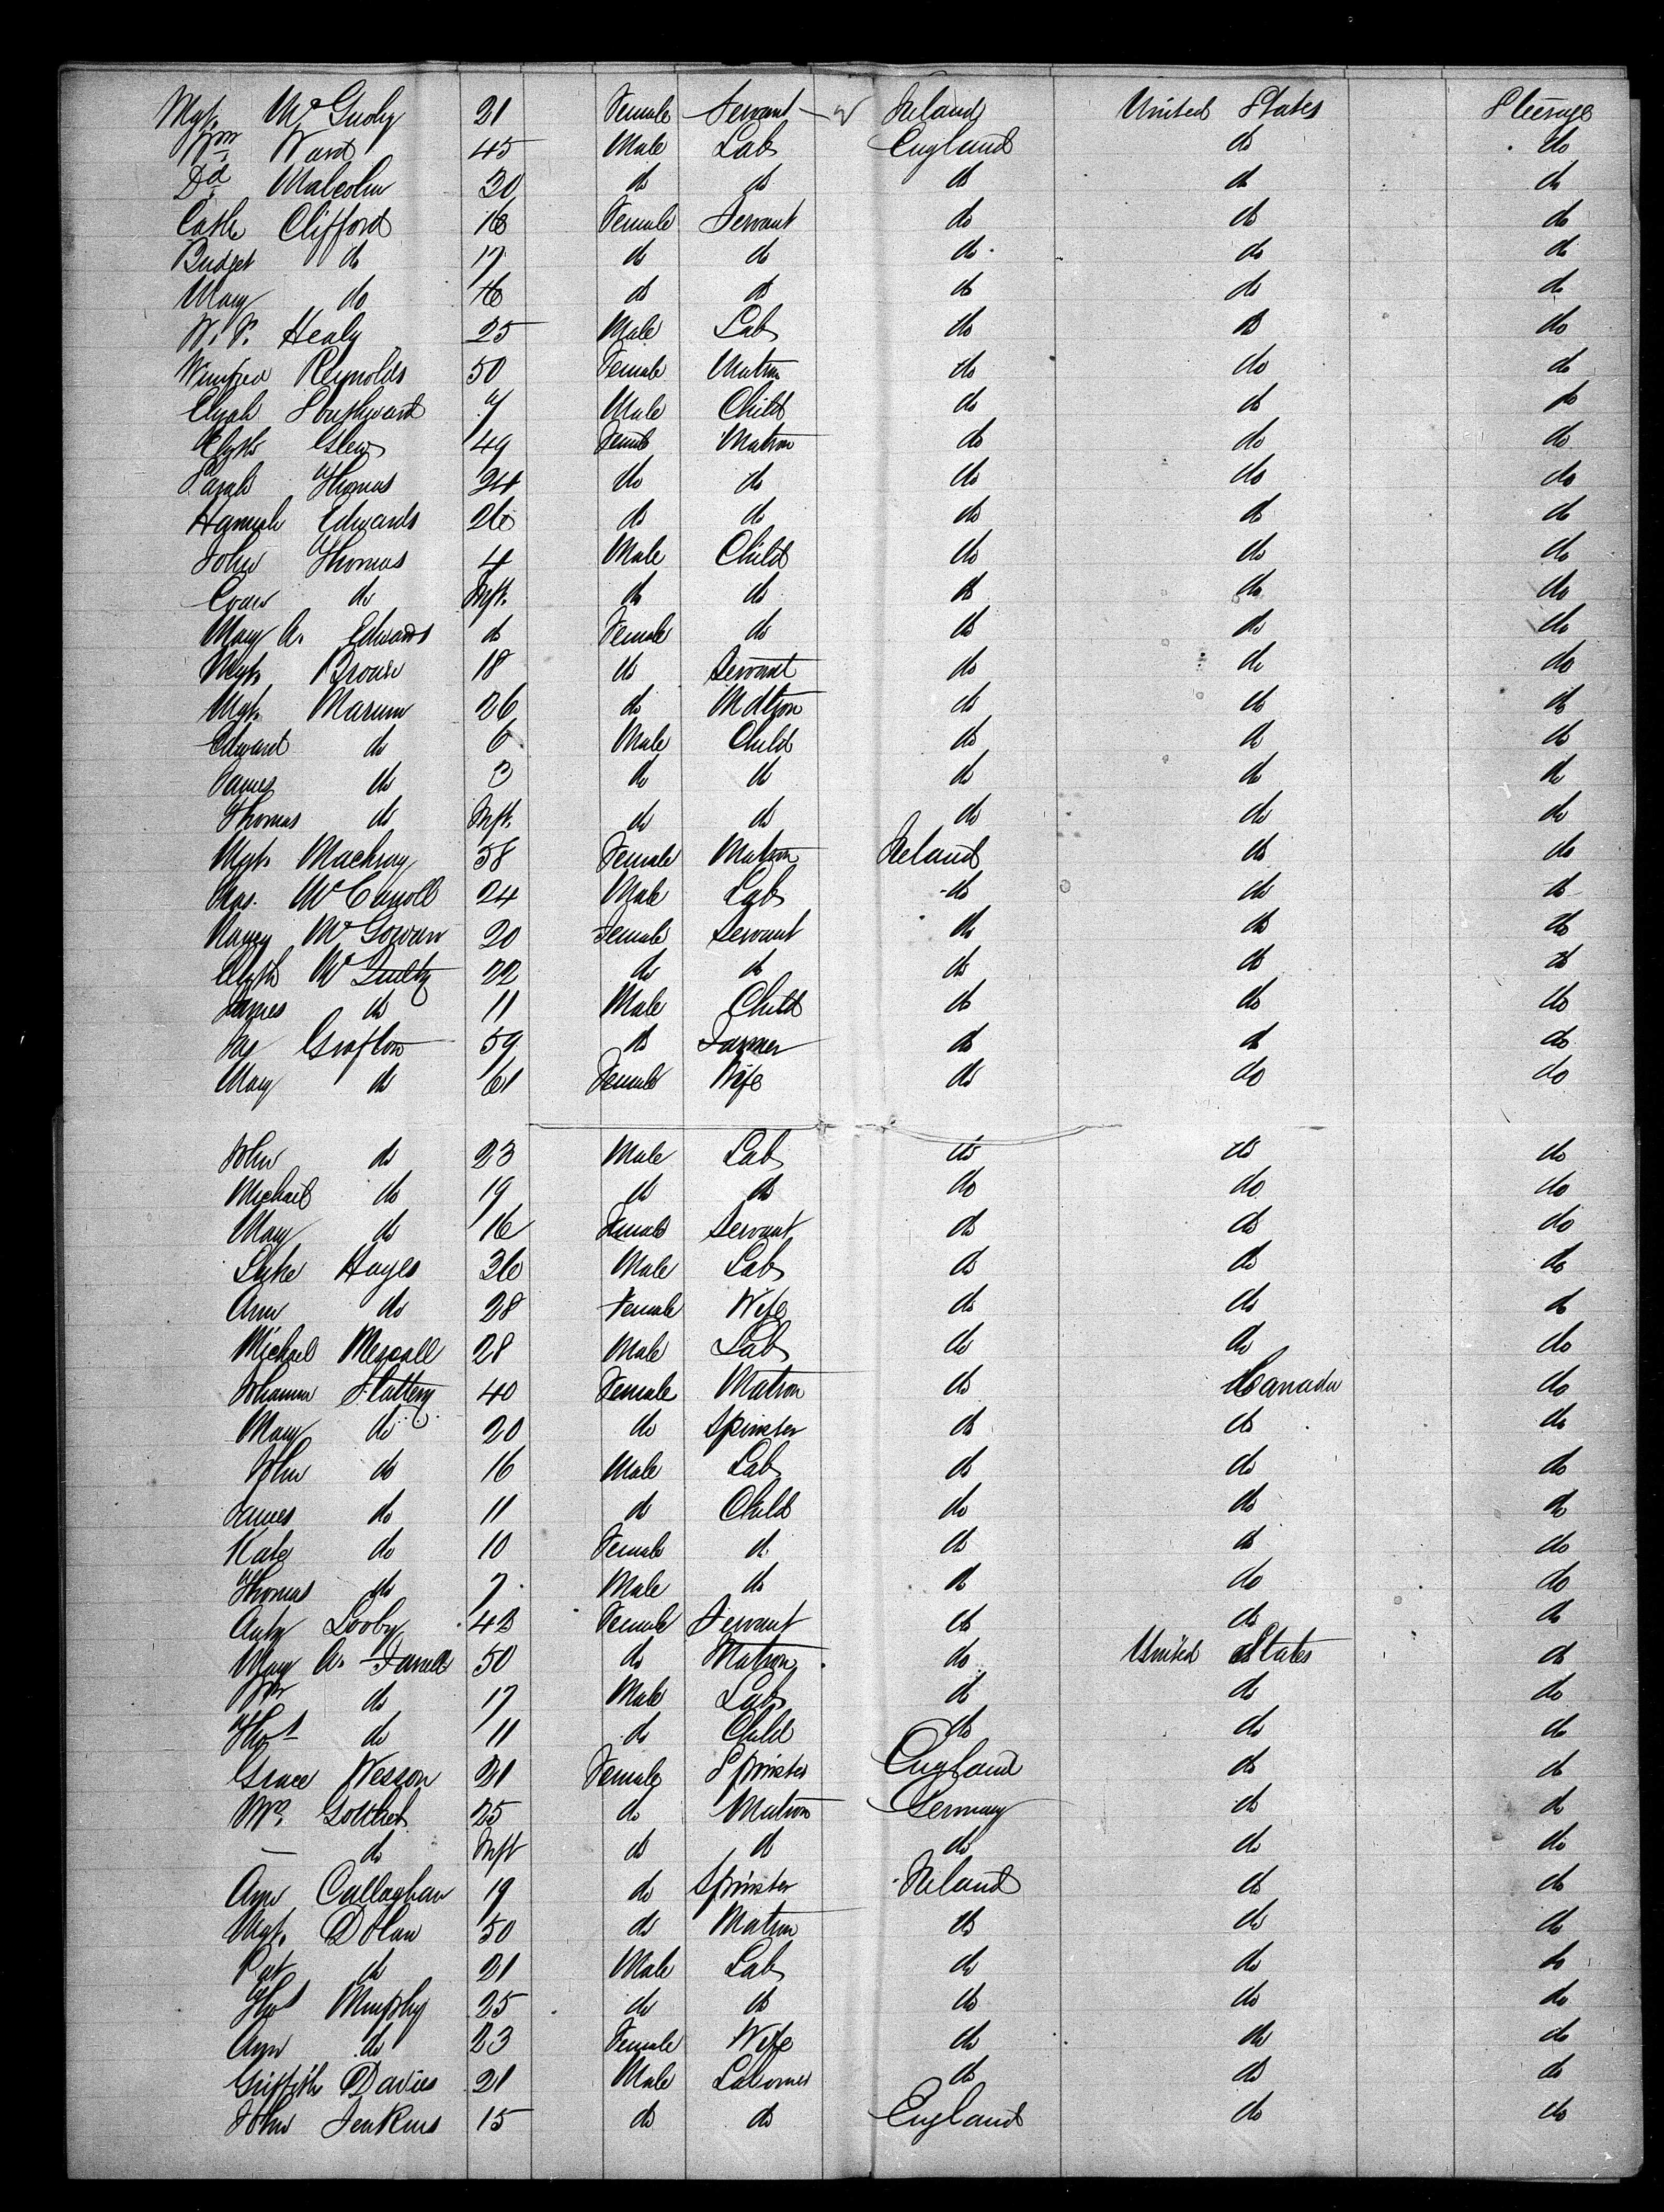 Mgt. Mc 21 Female Servant Ireland United States Steerage
Wm Ward 45 Male Lab England do do
Dd Malcolm 30 do do do do do
Cath Clifford 18 Female Servant do do do
Bridget do 17 do do do do do
Mary do 16 do do do do do
W. P. Healy 25 Male Lab do do do
Winifred Reynolds 50 Female Matron do do do
Elijah Southward Male Child do do do
Elizth Glew 49 Female Matron do do do
Sarah Thomas 24 do do do do do
Hannah Edwards 26 do do do do do
John Thomas 4 Male Child do do do
Evan do Inft. do do do do do
Mary A. Edwards do Female do do do do
Mgt. Brown 18 do Servant do do do
Mgt. Marum 26 do Matron do do do
Edward do 6 Male Child do do do
James do 3 do do do do do
Thomas do Inft. do do do do do
Mgt. Mackray 58 Female Matron Ireland do do
Jas. McCarroll 24 Male Lab do do do
Nancy McGowan 20 Female Servant do do do
Elizth Mc 22 do do do do do
James do 11 Male Child do do do
Jas Grafton 59 do Farmer do do do
Mary do 61 Female Wife do do do
John do 23 Male Lab do do do
Michael do 19 do do do do do
Mary do 16 Female Servant do do do
Luke Hayes 36 Male Lab do do do
Ann do 28 Female Wife do do do
Michael 28 Male Lab do do do
Johanna Slattery 40 Female Matron do Canada do
Mary do 20 do Spinster do do do
John do 16 Male Lab do do do
James do 11 do Child do do do
Kate do 10 Female do do do do
Thomas do 7 Male do do do do
Anty Looby 43 Female Servant do do do
Mary A. Farrell 50 do Matron do United States do
Wm do 17 Male Lab do do do
Thos do 11 do Child do do do
Grace Wesson 21 Female Spinster England do do
Mrs 25 do Matron Germany do do
— do Inft do do do do do
Ann Callaghan 19 do Spinster Ireland do do
Mgt. Dolan 50 do Matron do do do
Pat do 21 Male Lab do do do
Thos Murphy 25 do do do do do
Ann do 23 Female Wife do do do
Griffith Davies 21 Male Labourer do do do
John Jenkins 15 do do England do do